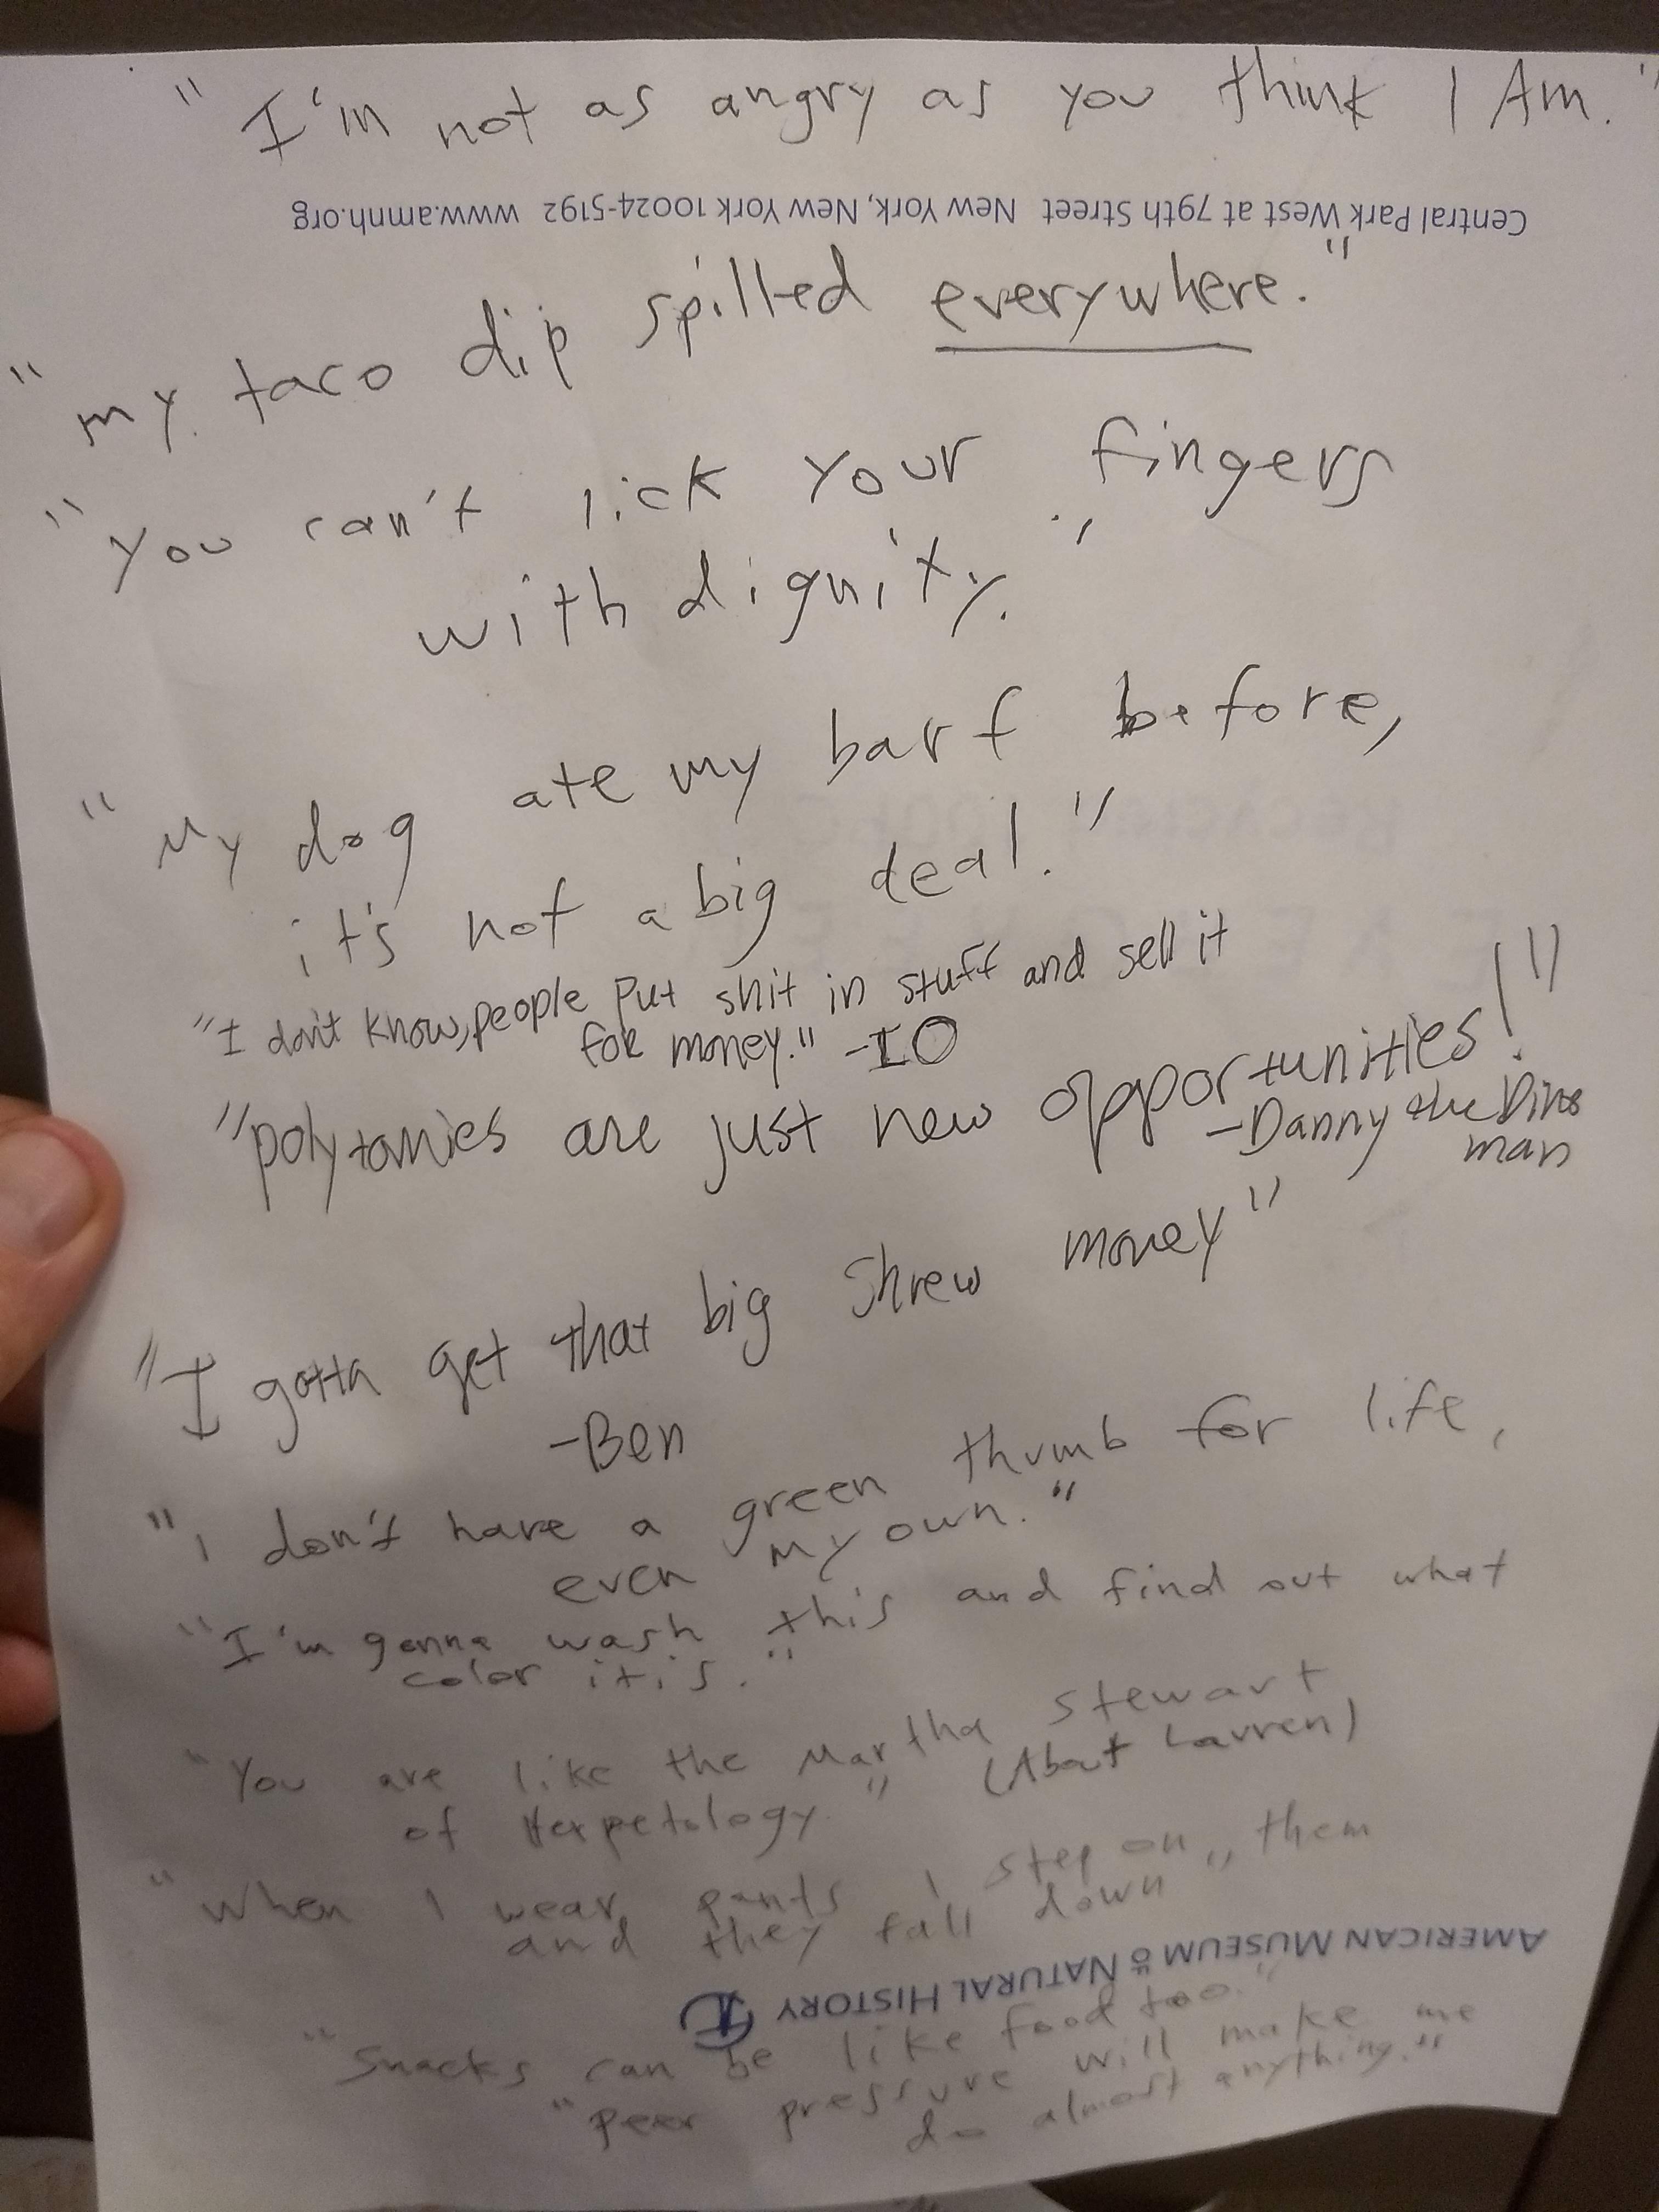 "I'm not as angry as you think I Am."
Central Park West at 79th Street New York, New York 10024-5192 www.amnh.org
"my taco dip spilled everywhere."
"You can't lick your fingers
with dignity."
"My dog ate my barf before,
it's not a big deal."
"I don't know, people put shit in stuff and sell it
for money." -IO
"polytomies are just new opportunities!"
-Danny the Dino
man
"I gotta get that big shrew money"
-Ben
"I don't have a green thumb for life,
even my own."
"I'm gonna wash this and find out what
color it is."
"You are like the Martha Stewart
of Herpetology" (About Lauren)
"When I wear pants I step on them
and they fall down"
AMERICAN MUSEUM OF NATURAL HISTORY
"Snacks can be like food too."
"Peer pressure will make me
do almost anything."